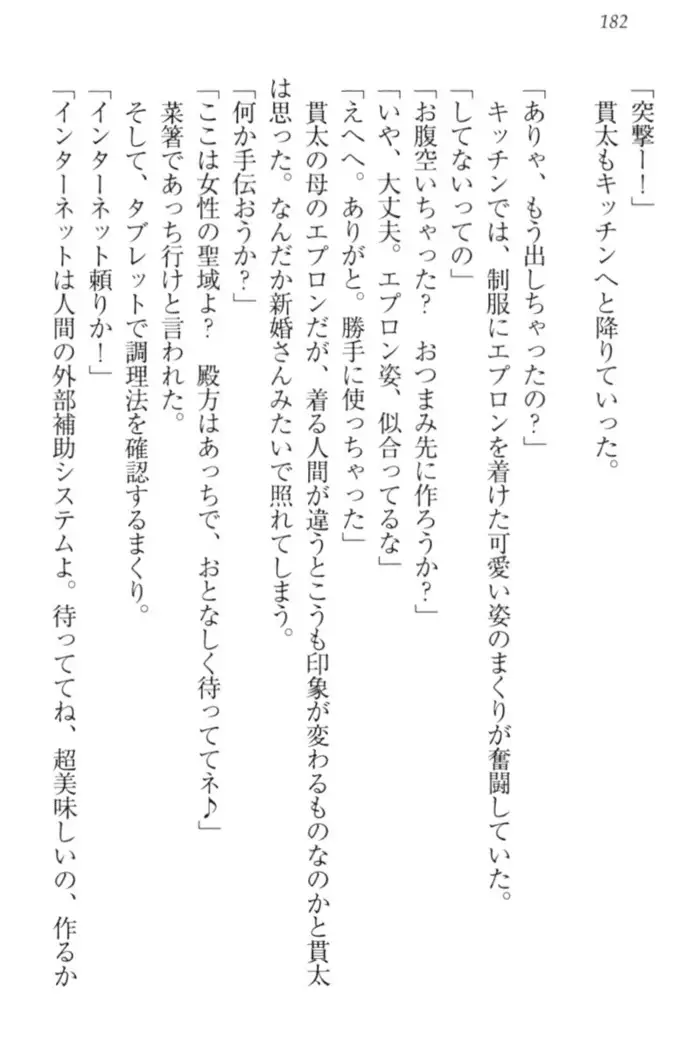 182
「突撃ー！」
貫太もキッチンへと降りていった。
「ありゃ、もう出しちゃったの？」
キッチンでは、制服にエプロンを着けた可愛い姿のまくりが奮闘していた。
「してないっての」
「お腹空いちゃった？　おつまみ先に作ろうか？」
「いや、大丈夫。エプロン姿、似合ってるな」
「えへへ。ありがと。勝手に使っちゃった」
貫太の母のエプロンだが、着る人間が違うとこうも印象が変わるものなのかと貫太
は思った。なんだか新婚さんみたいで照れてしまう。
「何か手伝おうか？」
「ここは女性の聖域よ？　殿方はあっちで、おとなしく待っててネ♪」
菜箸であっち行けと言われた。
そして、タブレットで調理法を確認するまくり。
「インターネット頼りか！」
「インターネットは人間の外部補助システムよ。待っててね、超美味しいの、作るか